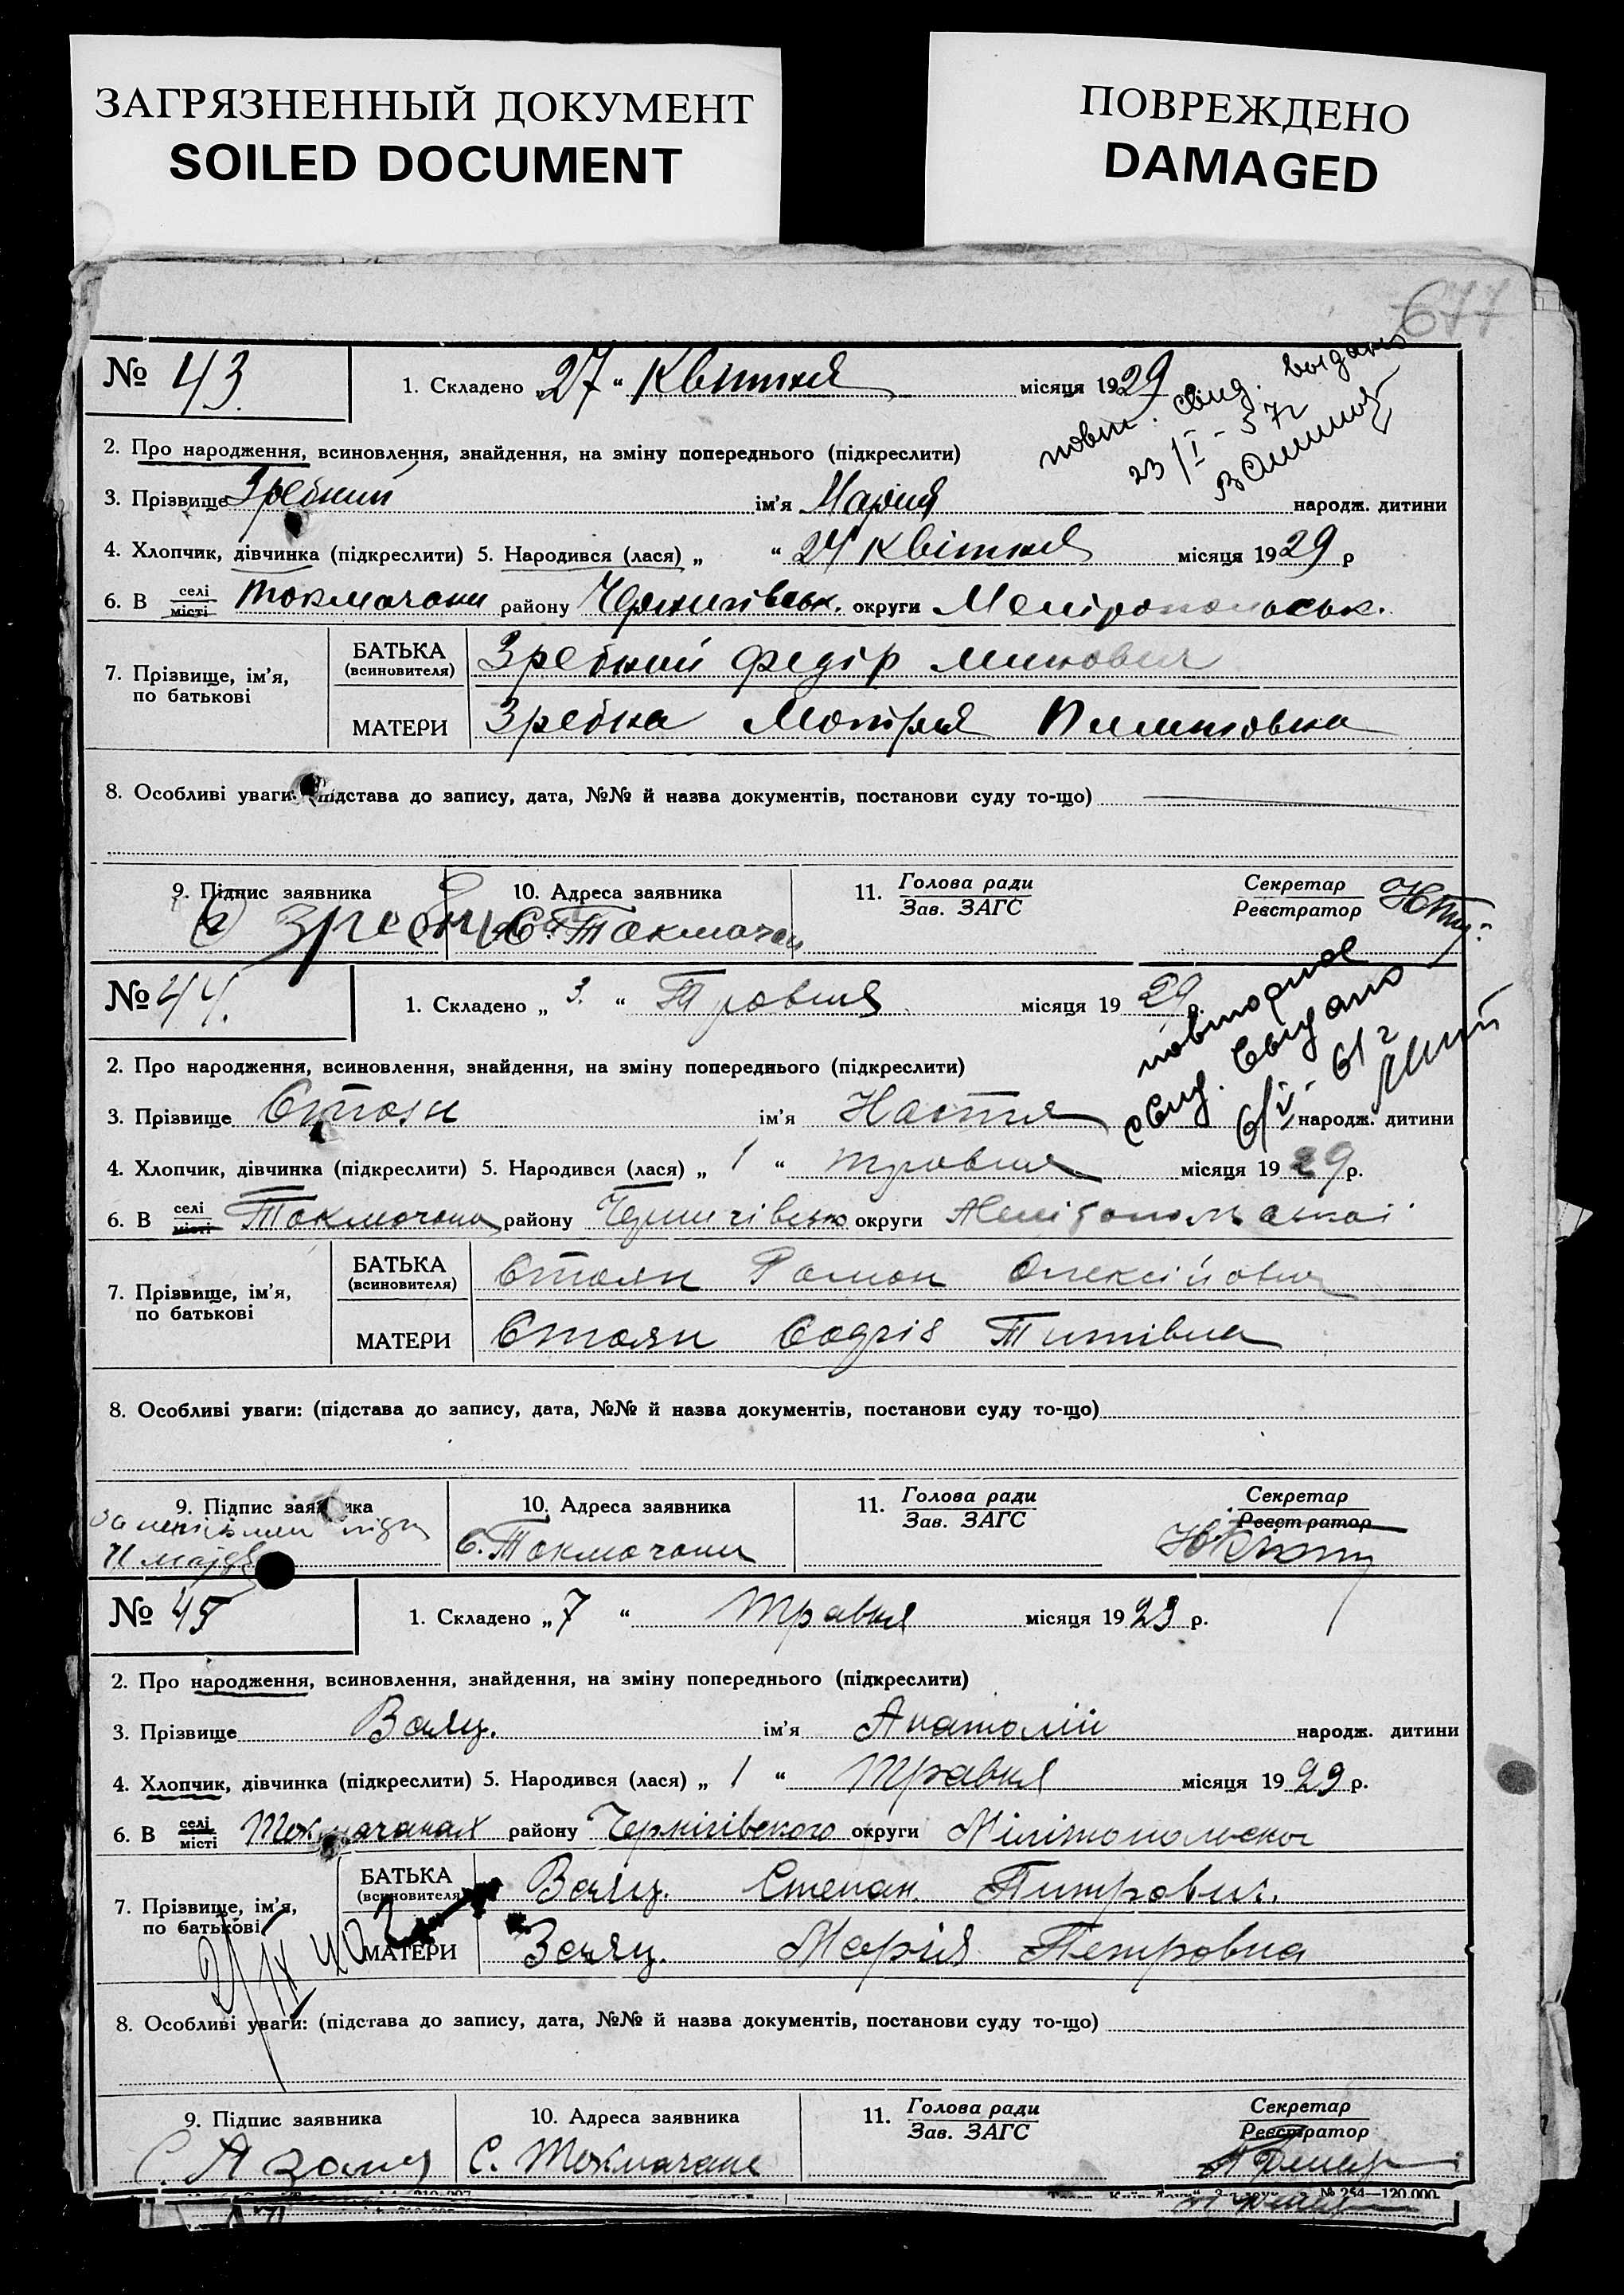 ЗАГРЯЗНЕННЫЙ ДОКУМЕНТ
SOILED DOCUMENT
ПОВРЕЖДЕНО
DAMAGED
677
№ 43. 1. Складено „27“ Квітня місяця 1929
повт. свид. выдано
23/I-57г
2. Про народження, всиновлення, знайдення, на зміну попереднього (підкреслити)
3. Прізвище Зребний ім'я Мария народж. дитини
4. Хлопчик, дівчинка (підкреслити) 5. Народився (лася) „ “ 24 Квітня місяця 1929 р
6. В селі місті Токмачани району Чернигівськ. округи Меліропольськ.
7. Прізвище, ім'я, по батькові
БАТЬКА (всиновителя) Зребний Федір Минович
МАТЕРИ Зребна Мотря Пилиповна
8. Особливі уваги: (підстава до запису, дата, №№ й назва документів, постанови суду то-що)
9. Підпис заявника 10. Адреса заявника 11. Голова ради Зав. ЗАГС Секретар Реєстратор
С. Токмачан
№ 44. 1. Складено „ 3. “ Травня місяця 1929 р.
повторное
свид. выдано
6/V-61г
2. Про народження, всиновлення, знайдення, на зміну попереднього (підкреслити)
3. Прізвище Стоян ім'я Настя народж. дитини
4. Хлопчик, дівчинка (підкреслити) 5. Народився (лася) „ 1 “ травня місяця 1929 р.
6. В селі місті Токмочани району Чернигівсько округи Мелітопольської
7. Прізвище, ім'я, по батькові
БАТЬКА (всиновителя) Стоян Роман Олексійович
МАТЕРИ Стоян Титівна
8. Особливі уваги: (підстава до запису, дата, №№ й назва документів, постанови суду то-що)
9. Підпис заявника 10. Адреса заявника 11. Голова ради Зав. ЗАГС Секретар Реєстратор
С. Токмочани
№ 45 1. Складено „7 “ травня місяця 1929 р.
2. Про народження, всиновлення, знайдення, на зміну попереднього (підкреслити)
3. Прізвище Заяц. ім'я Анатолій народж. дитини
4. Хлопчик, дівчинка (підкреслити) 5. Народився (лася) „ 1 “ Травня місяця 1929 р.
6. В селі місті Токмачанах району Чернігівського округи Мілітопольскої
7. Прізвище, ім'я, по батькові
БАТЬКА (всиновителя) Заяц. Степан. Питрович.
МАТЕРИ Заяц. Марія Петровна
8. Особливі уваги: (підстава до запису, дата, №№ й назва документів, постанови суду то-що)
9. Підпис заявника 10. Адреса заявника 11. Голова ради Зав. ЗАГС Секретар Реєстратор
С. Токмачане
№ 254—120.000.